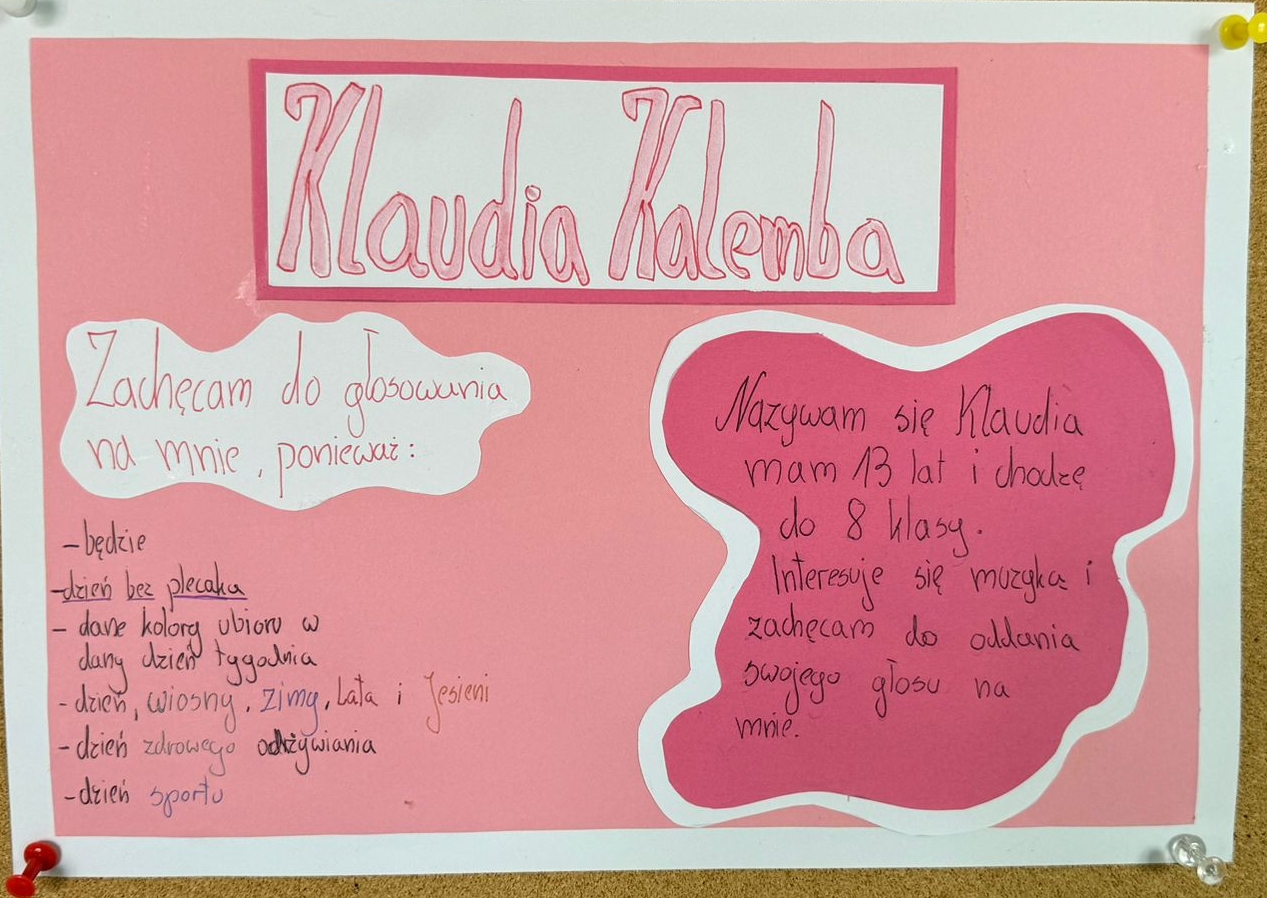 Klaudia Kalemba
Zachęcam do głosowania
na mnie, ponieważ:
-będzie
-dzień bez plecaka
- dane kolory ubioru w
dany dzień tygodnia
- dzień, wiosny, zimy, Lata i Jesieni
-dzień zdrowego odżywiania
-dzień sportu
Nazywam się Klaudia
mam 13 lat i chodzę
do 8 klasy.
Interesuje się muzyka i
zachęcam do oddania
swojego głosu na
mnie.